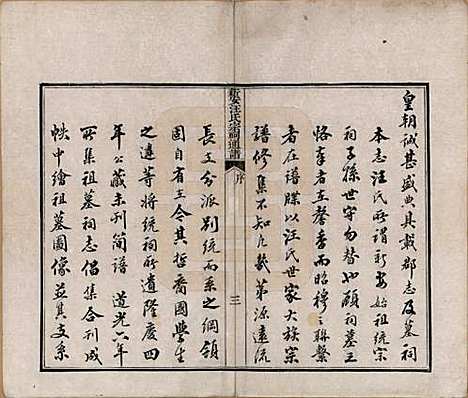 皇朝誠甚盛典具載郡志及墓祠
本志汪氏所謂新安始祖統宗
祠子孫世守勿替也顧祠墓主
恪奉者主馨香而昭穆之聯繫
者在譜牒以汪氏世家大族宗
譜修集不知凡幾第源遠流
新安汪氏宗祠通譜
序
三
長支分派別統而系之綱領
固自有在今其哲裔國學生
之遴等將統祠所遺隆慶四
年公藏未刊簡譜道光六年
所集祖墓祠志倡集合刊成
帙中繪祖墓圖像並其支系